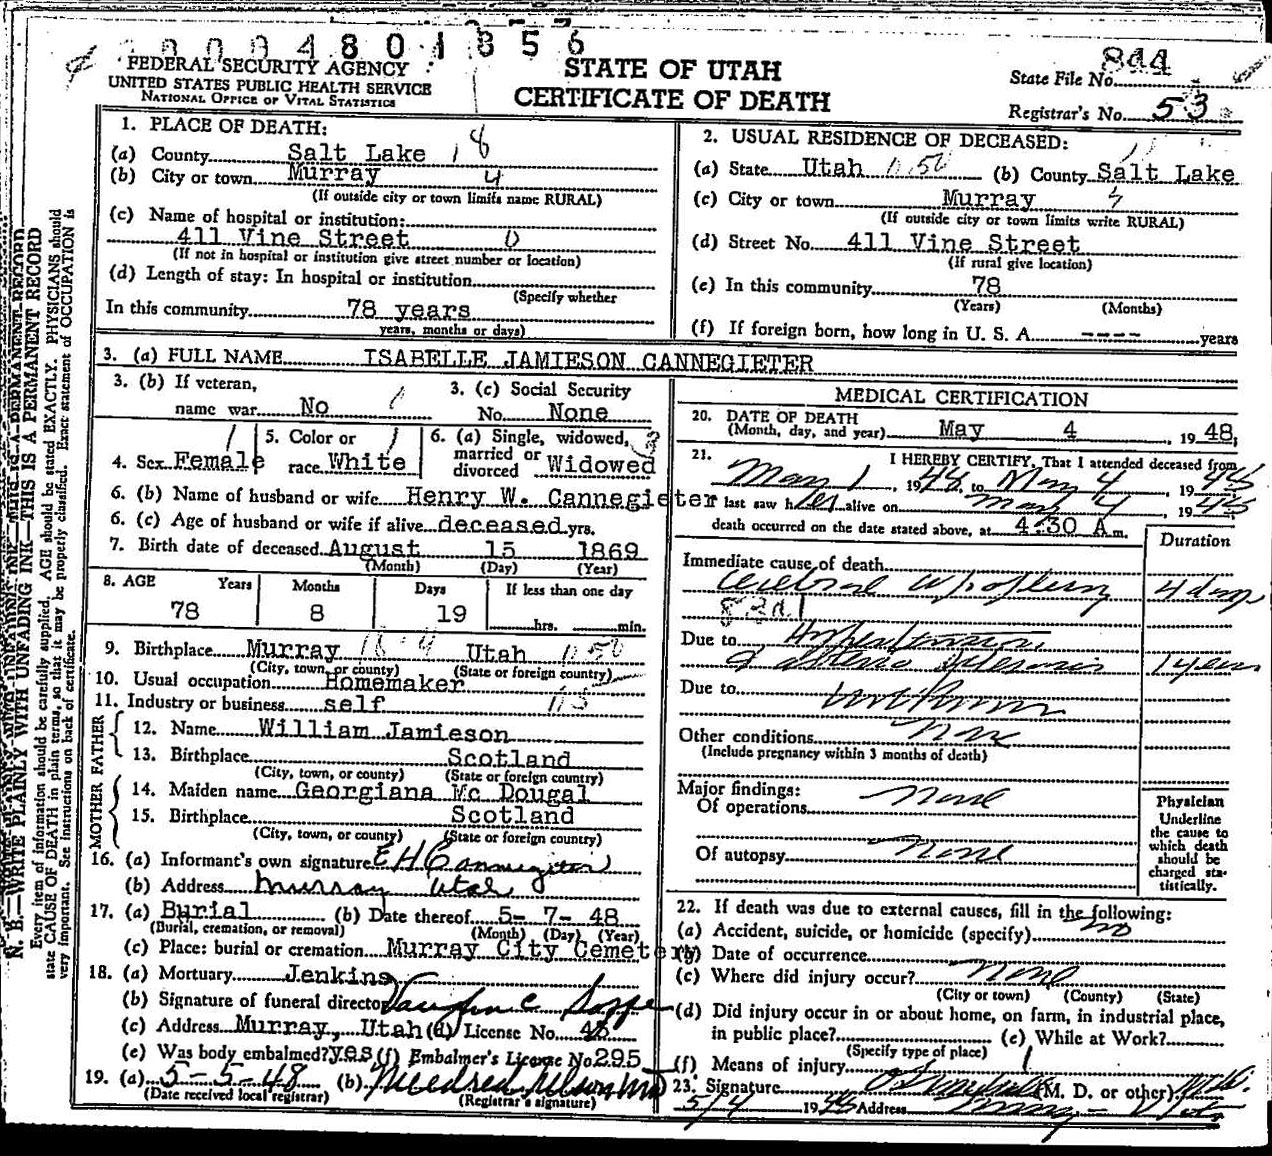 0004801856
FEDERAL SECURITY AGENCY
UNITED STATES PUBLIC HEALTH SERVICE
NATIONAL OFFICE OF VITAL STATISTICS
STATE OF UTAH
CERTIFICATE OF DEATH
State File No. 844
Registrar's No. 53
N. B.—WRITE PLAINLY WITH UNFADING INK—THIS IS A PERMANENT RECORD
Every item of information should be carefully supplied. AGE should be stated EXACTLY. PHYSICIANS should
state CAUSE OF DEATH in plain terms, so that it may be properly classified. Exact statement of OCCUPATION is
very important. See instructions on back of certificate.
1. PLACE OF DEATH:
(a) County Salt Lake 18
(b) City or town Murray 4
(If outside city or town limits name RURAL)
(c) Name of hospital or institution:
411 Vine Street 0
(If not in hospital or institution give street number or location)
(d) Length of stay: In hospital or institution
(Specify whether
In this community 78 years
years, months or days)
2. USUAL RESIDENCE OF DECEASED:
(a) State Utah (b) County Salt Lake
(c) City or town Murray
(If outside city or town limits write RURAL)
(d) Street No. 411 Vine Street
(If rural give location)
(e) In this community 78
(Years) (Months)
(f) If foreign born, how long in U. S. A. ---- years
3. (a) FULL NAME ISABELLE JAMIESON CANNEGIETER
3. (b) If veteran,
name war No
3. (c) Social Security
No. None
4. Sex Female
5. Color or
race White
6. (a) Single, widowed,
married or
divorced Widowed
6. (b) Name of husband or wife Henry W. Cannegieter
6. (c) Age of husband or wife if alive deceased yrs.
7. Birth date of deceased August 15 1869
(Month) (Day) (Year)
8. AGE Years Months Days If less than one day
78 8 19 hrs. min.
9. Birthplace Murray Utah
(City, town, or county) (State or foreign country)
10. Usual occupation Homemaker
11. Industry or business self
FATHER
12. Name William Jamieson
13. Birthplace Scotland
(City, town, or county) (State or foreign country)
MOTHER
14. Maiden name Georgiana Mc Dougal
15. Birthplace Scotland
(City, town, or county) (State or foreign country)
16. (a) Informant's own signature E H Cannegieter
(b) Address Murray Utah
17. (a) Burial (b) Date thereof 5- 7- 48
(Burial, cremation, or removal) (Month) (Day) (Year)
(c) Place: burial or cremation Murray City Cemetery
18. (a) Mortuary Jenkins
(b) Signature of funeral director
(c) Address Murray, Utah (d) License No.
(e) Was body embalmed? yes (f) Embalmer's License No. 295
19. (a) 5-5-48 (b) Mildred Nelson MD
(Date received local registrar) (Registrar's signature)
MEDICAL CERTIFICATION
20. DATE OF DEATH
(Month, day, and year) May 4, 1948;
21. I HEREBY CERTIFY, That I attended deceased from
May 1, 1948, to May 4, 1948
I last saw her alive on May 4, 1948;
death occurred on the date stated above, at 4:30 A m.
Duration
Immediate cause of death
Cerebral Apoplexy 4 days
83a1
Due to Hypertension
& 1 year
Due to
Other conditions None
(Include pregnancy within 3 months of death)
Major findings:
Of operations None
Of autopsy None
Physician
Underline
the cause to
which death
should be
charged sta-
tistically.
22. If death was due to external causes, fill in the following:
(a) Accident, suicide, or homicide (specify) no
(b) Date of occurrence
(c) Where did injury occur? None
(City or town) (County) (State)
(d) Did injury occur in or about home, on farm, in industrial place,
in public place? (e) While at Work?
(Specify type of place)
(f) Means of injury
23. Signature (M. D. or other) M.D.
5/4 1948 Address Murray - Utah